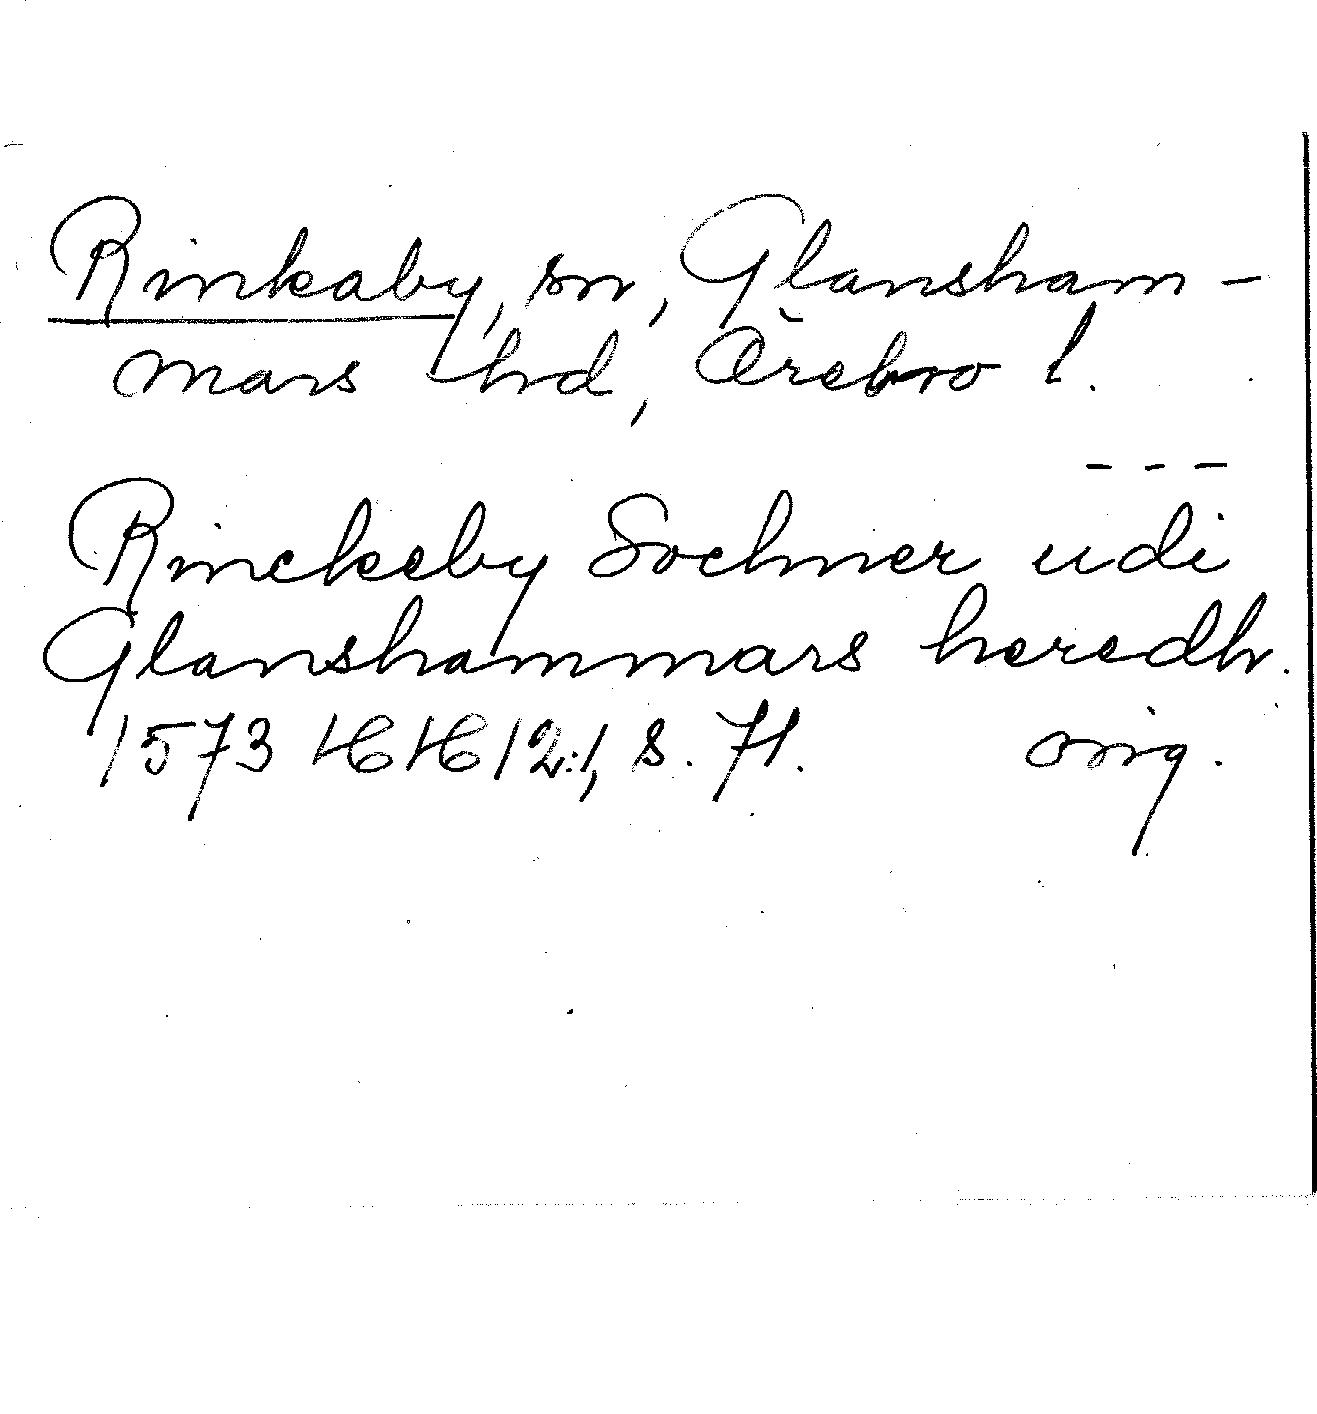 Rinkaby, sn, Glansham-
mars hd, Örebro l.
---
Rinckeby Sochner udi
Glanshammars heredh.
1573 HH 12:1, s. 71. orig.